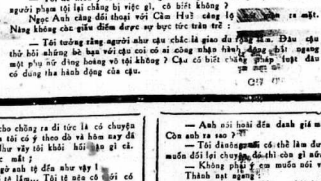 người phạm tội lại chẳng bị việc gì, cô biết không ?
Ngọc Anh càng đối thoại với Cầm Huê càng lộ ra mặt.
Nàng không còn giấu diếm được sự bực tức trên trê :
— Tôi tưởng rằng người như cậu chắc là giao du rộng lắm. Đâu cậu
thử hỏi những bè bạn với cậu coi có ai công nhận hành động bắt ngang
một phụ nữ đáng hoàng vô tội không ? Cậu có biết chăng pháp luật đâu
có dung tha hành động của cậu.
cho chồng ra đi tức là có chuyện
tôi có ý theo dò và hôm nay đã
như vậy tôi khỏi hỏi gì cả.
mất ;
anh tệ đến như vậy !
tệ lắm... Tôi tệ nên có với cô
— Anh nói hoài đến danh giá
Còn anh ra sao ?
— Tôi đàn ông có thể làm
muốn đổi lại chuyện đó thì còn gì
— Không phải ý em muốn nói
Thành nạt ngang